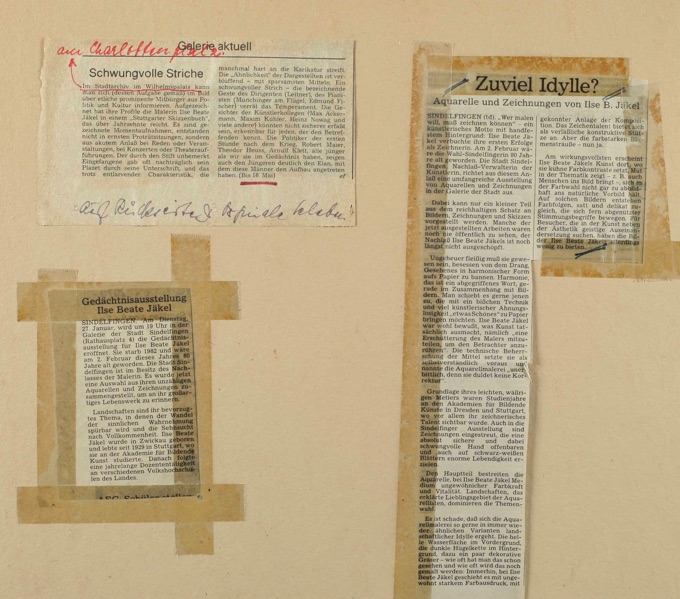 am Charlottenplatz
Galerie aktuell
Schwungvolle Striche
Im Stadtarchiv im Wilhelmspalais kann
man sich (dessen Aufgabe gemäß) im Bild
über etliche prominente Mitbürger aus Po-
litik und Kultur informieren. Aufgezeich-
net hat ihre Profile die Malerin Ilse Beate
Jäkel in einem „Stuttgarter Skizzenbuch“,
das über Jahrzehnte reicht. Es sind ge-
zeichnete Momentaufnahmen, entstanden
nicht in ernsten Porträtsitzungen, sondern
aus akutem Anlaß bei Reden oder Veran-
staltungen, bei Konzerten oder Theaterauf-
führungen. Der durch den Stift unbemerkt
Eingefangene gab oft nachträglich sein
Plazet durch seine Unterschrift, und das
trotz entlarvender Charakteristik, die
manchmal hart an die Karikatur streift.
Die „Ähnlichkeit“ der Dargestellten ist ver-
blüffend – mit sparsamsten Mitteln. Ein
schwungvoller Strich – die bezeichnende
Geste des Dirigenten (Leitner), des Plasti-
sten (Manchinger am Flügel, Edmund Fi-
scher) verrät das Temperament. Die Ge-
sichter der Künstlerkollegen (Max Acker-
mann, Maxim Kohler, Heinz Nowig und
viele andere) könnten nicht sicherer erfaßt
sein, erkennbar für jeden, der den Betref-
fenden kennt. Die Politiker der ersten
Stunde nach dem Krieg, Robert Maier,
Theodor Heuss, Arnulf Klett, alle jünger
als wir sie im Gedächtnis haben, zeigen
auch den Jüngeren deutlich den Elan, mit
dem diese Männer den Aufbau angetreten
haben. (Bis 18. Mai)
Gedächtnisausstellung
Ilse Beate Jäkel
SINDELFINGEN. Am Dienstag,
27. Januar, wird um 19 Uhr in der
Galerie der Stadt Sindelfingen
(Rathausplatz 4) die Gedächtnis-
ausstellung für Ilse Beate Jäkel
eröffnet. Sie starb 1982 und wäre
am 2. Februar dieses Jahres 80
Jahre alt geworden. Die Stadt Sin-
delfingen ist im Besitz des Nach-
lasses der Malerin. Es wurde jetzt
eine Auswahl aus ihren unzähligen
Aquarellen und Zeichnungen zu-
sammengestellt, um an ihr großar-
tiges Lebenswerk zu erinnern.
Landschaften sind ihr bevorzug-
tes Thema, in denen der Wandel
der sinnlichen Wahrnehmung
spürbar wird und die Sehnsucht
nach Vollkommenheit. Ilse Beate
Jäkel wurde in Zwickau geboren
und lebte seit 1929 in Stuttgart, wo
sie an der Akademie für Bildende
Kunst studierte. Danach folgte
eine jahrelange Dozententätigkeit
an verschiedenen Volkshochschu-
len des Landes.
Zuviel Idylle?
Aquarelle und Zeichnungen von Ilse B. Jäkel
SINDELFINGEN (di). „Wer malen
will, muß zeichnen können“ – ein
künstlerisches Motto mit handfe-
stem Hintergrund: Ilse Beate Jä-
kel verbuchte ihre ersten Erfolge
als Zeichnerin. Am 2. Februar wä-
re die Wahl-Sindelfingerin 80 Jah-
re alt geworden. Die Stadt Sindel-
fingen, Nachlaß-Verwalterin der
Künstlerin, richtet aus diesem An-
laß eine umfangreiche Ausstellung
von Aquarellen und Zeichnungen
in der Galerie der Stadt aus.
Dabei kann nur ein kleiner Teil
aus dem reichhaltigen Schatz an
Bildern, Zeichnungen und Skizzen
vorgestellt werden. Manche der
jetzt ausgestellten Arbeiten waren
noch nie öffentlich zu sehen, der
Nachlaß Ilse Beate Jäkels ist noch
längst nicht ausgeschöpft.
Ungeheuer fleißig muß sie gewe-
sen sein, besessen von dem Drang,
Gesehenes in harmonischer Form
aufs Papier zu bannen. Harmonie,
das ist ein abgegriffenes Wort, ge-
rade im Zusammenhang mit Bil-
dern. Man schiebt es gerne jenen
zu, die mit ein bißchen Technik
und viel künstlerischer Ahnungs-
losigkeit „etwas Schönes“ zu Papier
bringen möchten. Ilse Beate Jäkel
war wohl bewußt, was Kunst tat-
sächlich ausmacht, nämlich „eine
Erschütterung des Malers mitzu-
teilen, um den Betrachter anzu-
rühren“. Die technische Beherr-
schung der Mittel setzte sie als
selbstverständlich voraus und
nannte die Aquarellmalerei „uner-
bittlich, denn sie duldet keine Kor-
rektur“.
Grundlage ihres leichten, wäßri-
gen Metiers waren Studienjahre
an den Akademien für Bildende
Künste in Dresden und Stuttgart,
wo vor allem ihr zeichnerisches
Talent sichtbar wurde. Auch in die
Sindelfinger Ausstellung sind
Zeichnungen eingestreut, die eine
absolut sichere und dabei
schwungvolle Hand offenbaren
und auch auf schwarz-weißen
Blättern enorme Lebendigkeit er-
zielen.
Den Hauptteil bestreiten die
Aquarelle, bei Ilse Beate Jäkel Me-
dium ungewöhnlicher Farbkraft
und Vitalität. Landschaften, das
erklärte Lieblingsgebiet der Aqua-
rellisten, dominieren die Themen-
wahl.
Es ist schade, daß sich die Aqua-
rellmalerei so gerne in immer wie-
der ähnlichen Varianten land-
schaftlicher Idylle ergeht. Die hel-
le Wasserfläche im Vordergrund,
die dunkle Hügelkette im Hinter-
grund, dazu ein paar dekorative
Gräser – wie oft hat man das schon
gesehen und wie oft wird das noch
gemalt werden. Immerhin, bei Ilse
Beate Jäkel geschieht es mit unge-
wohnt starkem Farbausdruck, mit
gekonnter Anlage der Komposi-
tion. Das Zeichentalent bietet sich
als verläßliche konstruktive Stüt-
ze an. Aber die farbstarken Blu-
mensträuße – nun ja.
Am wirkungsvollsten erscheint
Ilse Beate Jäkels Kunst dort, wo
sie kühne Farbkontraste setzt, Mut
in der Thematik zeigt – z. B. auch
Menschen ins Bild bringt –, sich in
der Farbwahl nicht gar zu sklavisch
haft ans natürliche Vorbild hält.
Auf solchen Bildern entstehen
Farbfolgen, satt und delikat zu-
gleich, die sich fern abgenutzter
Stimmungsbegriffe bewegen. Für
Besucher, die in der Kunst neben
der Ästhetik geistige Auseinan-
dersetzung suchen, haben die Bil-
der Ilse Beate Jäkels allerdings
wenig zu bieten.